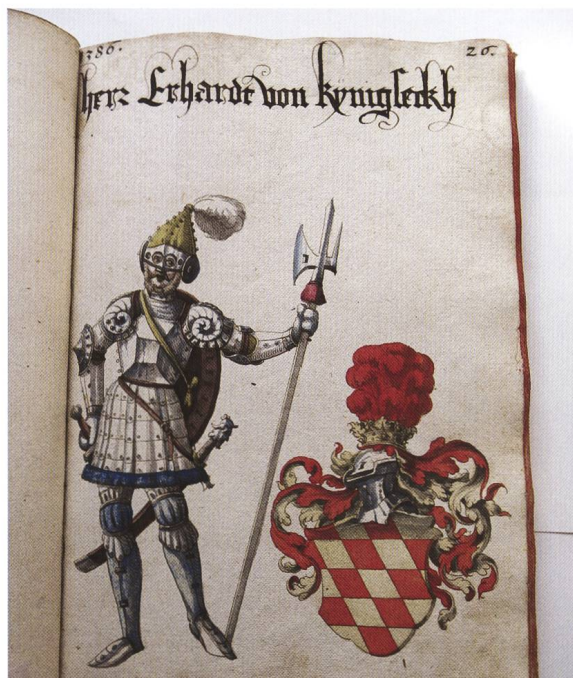 1386. 26.
herz Erharde von kynigseckh